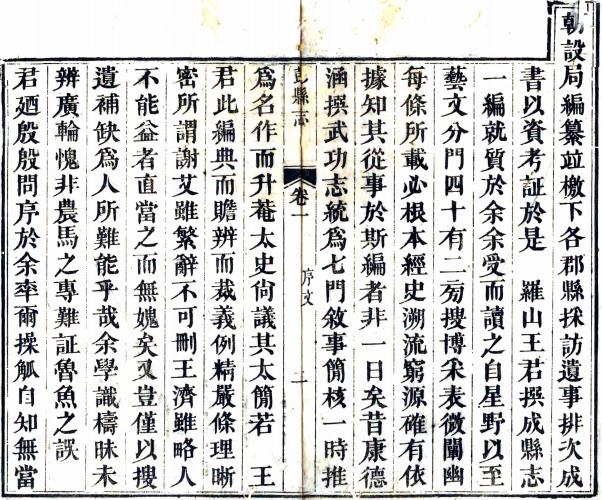 朝設局編纂竝檄下各郡縣採訪遺事排次成
書以資考証於是　羅山王君撰成縣志
一編就質於余余受而讀之自星野以至
藝文分門四十有二旁搜博采表微闡幽
每條所載必根本經史溯流窮源確有依
據知其從事於斯編者非一日矣昔康德
涵撰武功志統爲七門敘事簡核一時推
彭縣志　卷一　序文　二
爲名作而升菴太史尙議其太簡若　王
君此編典而贍辨而裁義例精嚴條理晰
密所謂謝艾雖繁辭不可刪王濟雖略人
不能益者直當之而無媿矣又豈僅以搜
遺補缺爲人所難能乎哉余學識檮昧未
辨廣輪愧非農馬之專難証魯魚之誤
君廼殷殷問序於余率爾操觚自知無當